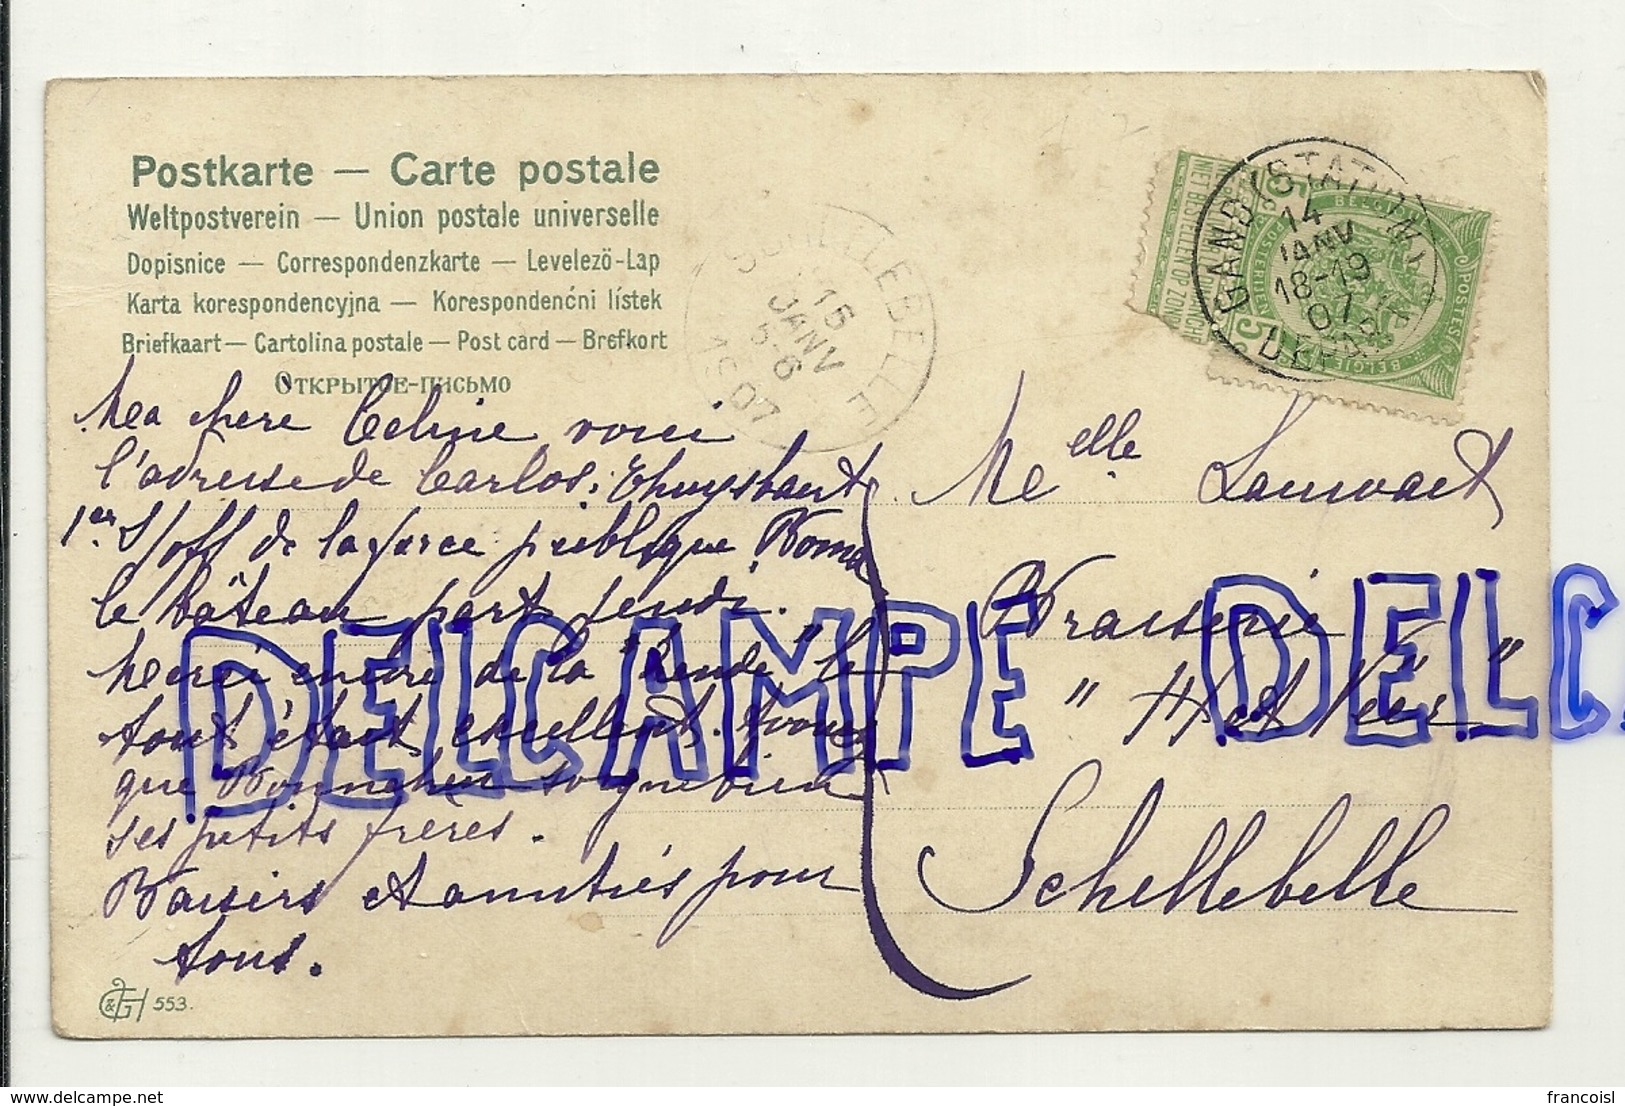 Postkarte — Carte postale
Weltpostverein — Union postale universelle
Dopisnice — Correspondenzkarte — Levelezö-Lap
Karta korespondencyjna — Korespondenćni lístek
Briefkaart — Cartolina postale — Post card — Brefkort
Открытое-письмо
Ma chere Celine voici
l'adresse de Carlos: Thuysbaert
1er S/off de la force publique Boma
le bâteau part jeudi.
Merci encore de la le
tout était excellent.
que soigne bien
ses petits frères.
Baisers et amitiés pour
tous.
553.
SCHELLEBELLE
15
JANV
5-6
1907
GAND (STATION)
14
JANV
18-19
07
DEPART
POSTES
BELGIQUE
5
NIET BESTELLEN OP ZONDAG
Melle Lauwaert
Brasserie
" Het Veer "
Schellebelle
DELCAMPE DELC
delcampe.net
francoisl